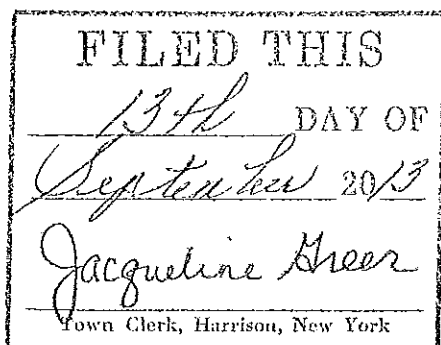 FILED THIS
13th DAY OF
September 2013
Jacqueline Greer
Town Clerk, Harrison, New York